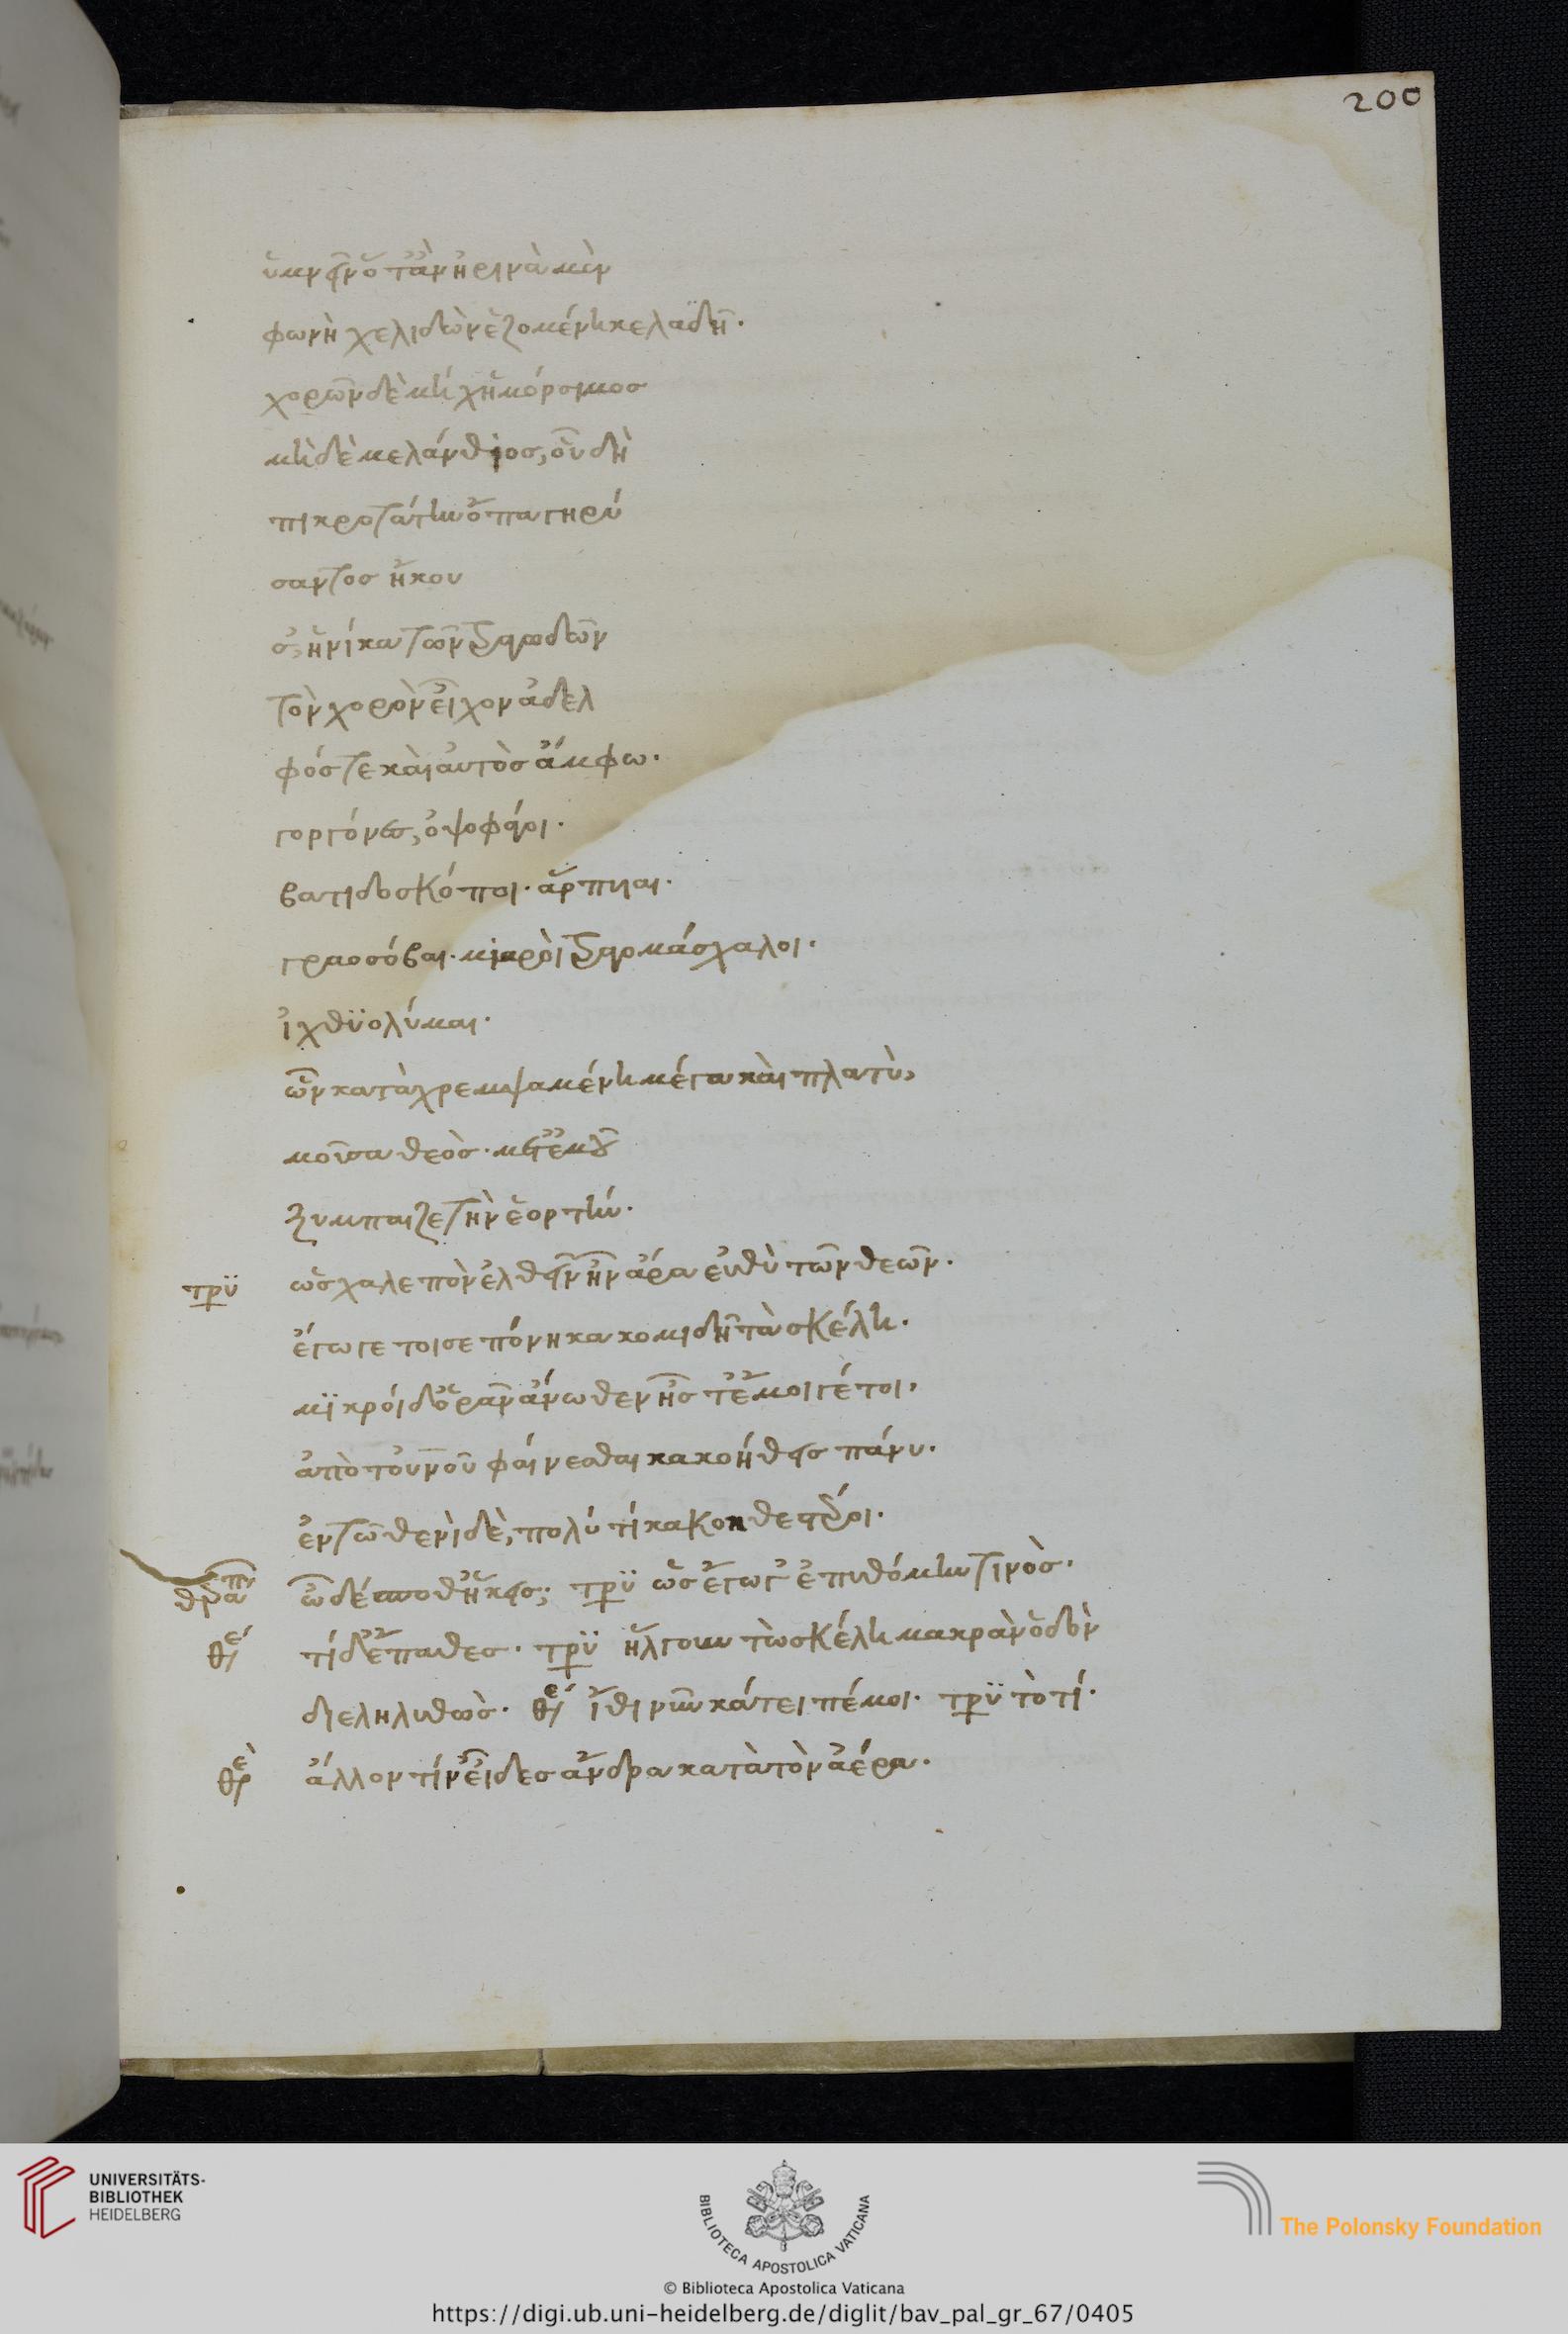 200
ὑμνεῖν ὅταν ἠρινὰ μὲν
φωνῇ χελιδὼν ἑζομένη κελαδῆ·
χορὸν δὲ μὴ χῆ μόρσιμος
μὴ δὲ μελάνθιος, οὗ δὴ
πικροτάτην ὄπα γηρύ
σαντος ἤκου
σ', ἡνίκα τῶν τραγωδῶν
τὸν χορὸν εἶχον ἀδελ
φός τε καὶ αὐτὸς ἄμφω·
γοργόνες, ὀψοφάγοι·
βατιδοσκόποι· ἅρπυιαι·
γραοσόβαι· μιαροὶ τραγομάσχαλοι·
ἰχθϋολύμαι·
ὧν καταχρεμψαμένη μέγα καὶ πλατὺ,
μοῦσα θεὸς· μετ' ἐμοῦ
ξυμπαιζε τὴν ἑορτήν·
τρυ ὡς χαλεπὸν ἐλθεῖν ἦν ἄρα εὐθὺ τῶν θεῶν·
ἔγωγε τοι πεπόνηκα κομιδῆ τὰ σκέλη·
μϊκροί δ' ὁρᾶν ἄνωθεν ἦστ' ἔμοιγέ τοι,
ἀπὸ τοὐρανοῦ φαίνεσθαι κακοήθεις πάνυ·
ἐντῶθενὶ δὲ, πολύ τί κακοηθέστεροι·
θεραπ ὦ δέσποθ' ἥκεις; τρυ ὡς ἔγωγ' ἐπυθόμην τινὸς·
θε τί δ' ἔπαθες· τρυ ἤλγουν τὼ σκέλη μακρὰν ὁδὸν
διεληλυθὼς· θε ἴθι νῦν κάτειπέ μοι· τρυ τὸ τί·
θε ἄλλον τίν' εἶδες ἄνδρα κατὰ τὸν ἀέρα·
UNIVERSITÄTS-
BIBLIOTHEK
HEIDELBERG
BIBLIOTECA APOSTOLICA VATICANA
The Polonsky Foundation
© Biblioteca Apostolica Vaticana
https://digi.ub.uni-heidelberg.de/diglit/bav_pal_gr_67/0405